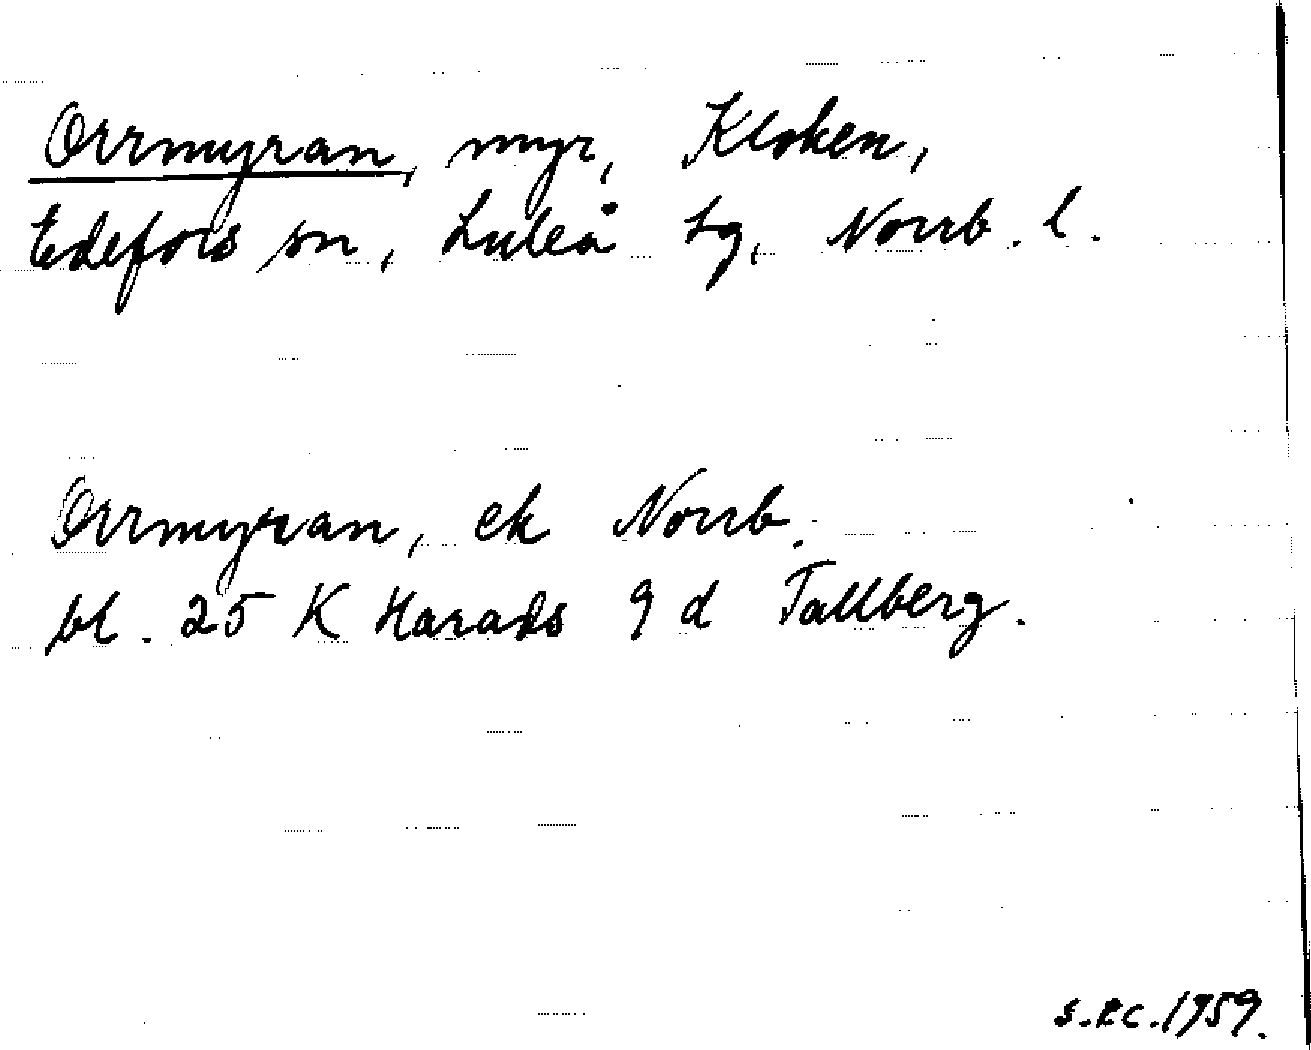 Orrmyran, myr, Kloken,
Edefors sn, Luleå tg, Norrb. l.
Orrmyran, ek Norrb.
bl. 25 K Harads 9 d Tallberg.
1959.